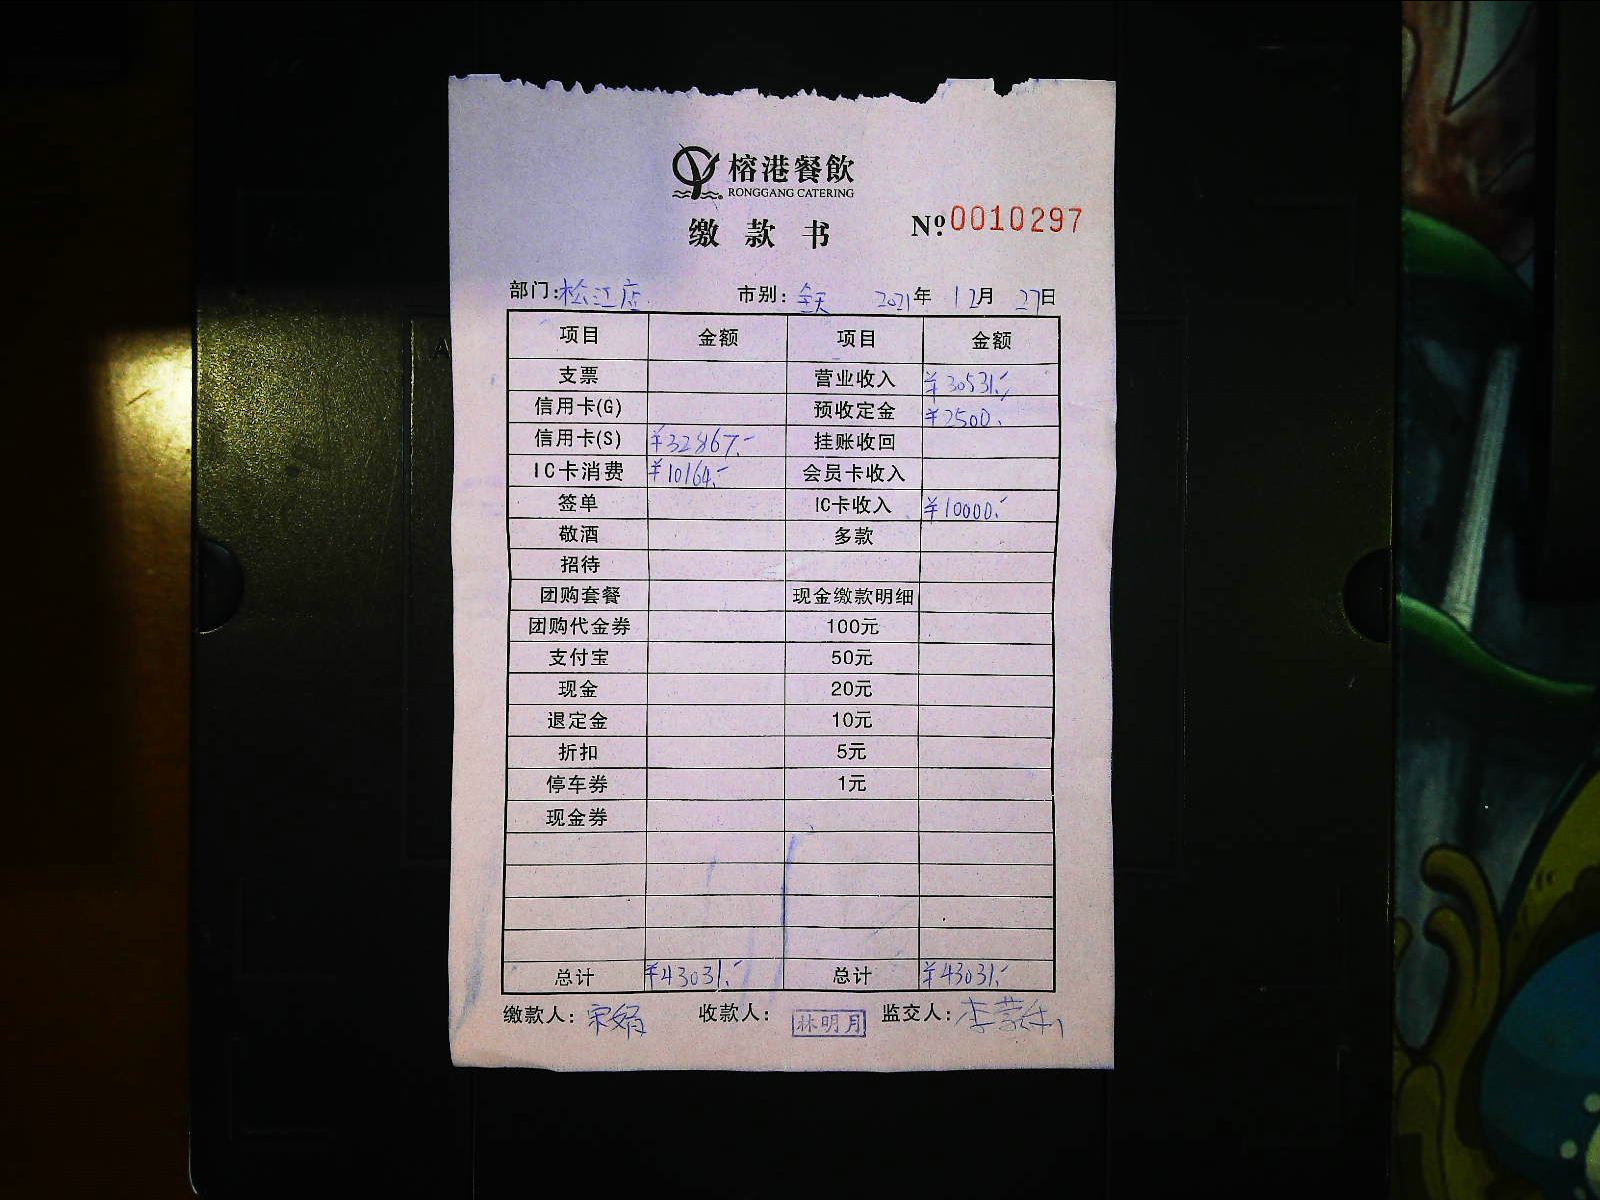 榕港餐飲
RONGGANG CATERING
缴款书
№ 0010297
部门: 松江店 市别: 全天 2021年 12月 27日
项目 金额 项目 金额
支票 营业收入 ¥30531.-
信用卡(G) 预收定金 ¥2500.-
信用卡(S) ¥32867.- 挂账收回
IC卡消费 ¥10164.- 会员卡收入
签单 IC卡收入 ¥10000.-
敬酒 多款
招待
团购套餐 现金缴款明细
团购代金券 100元
支付宝 50元
现金 20元
退定金 10元
折扣 5元
停车券 1元
现金券
总计 ¥43031.- 总计 ¥43031.-
缴款人: 宋娟 收款人: 林明月 监交人: 李蒙